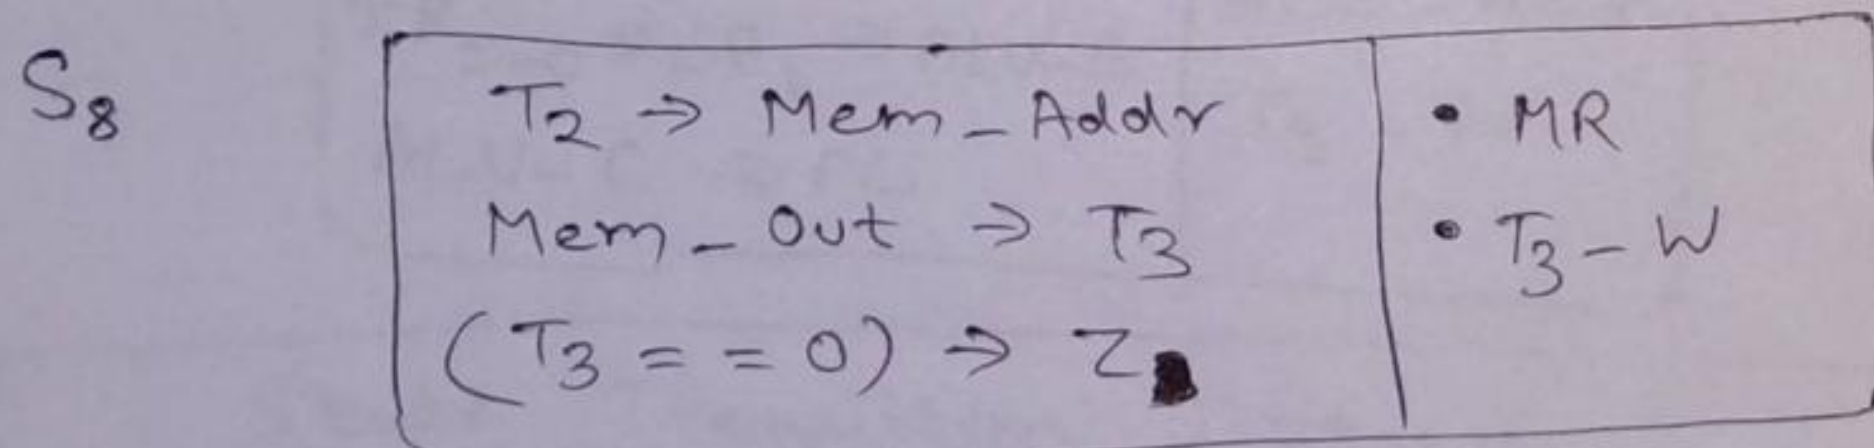 S8
T2 → Mem_Addr
Mem_Out → T3
(T3 == 0) → Z
• MR
• T3-W